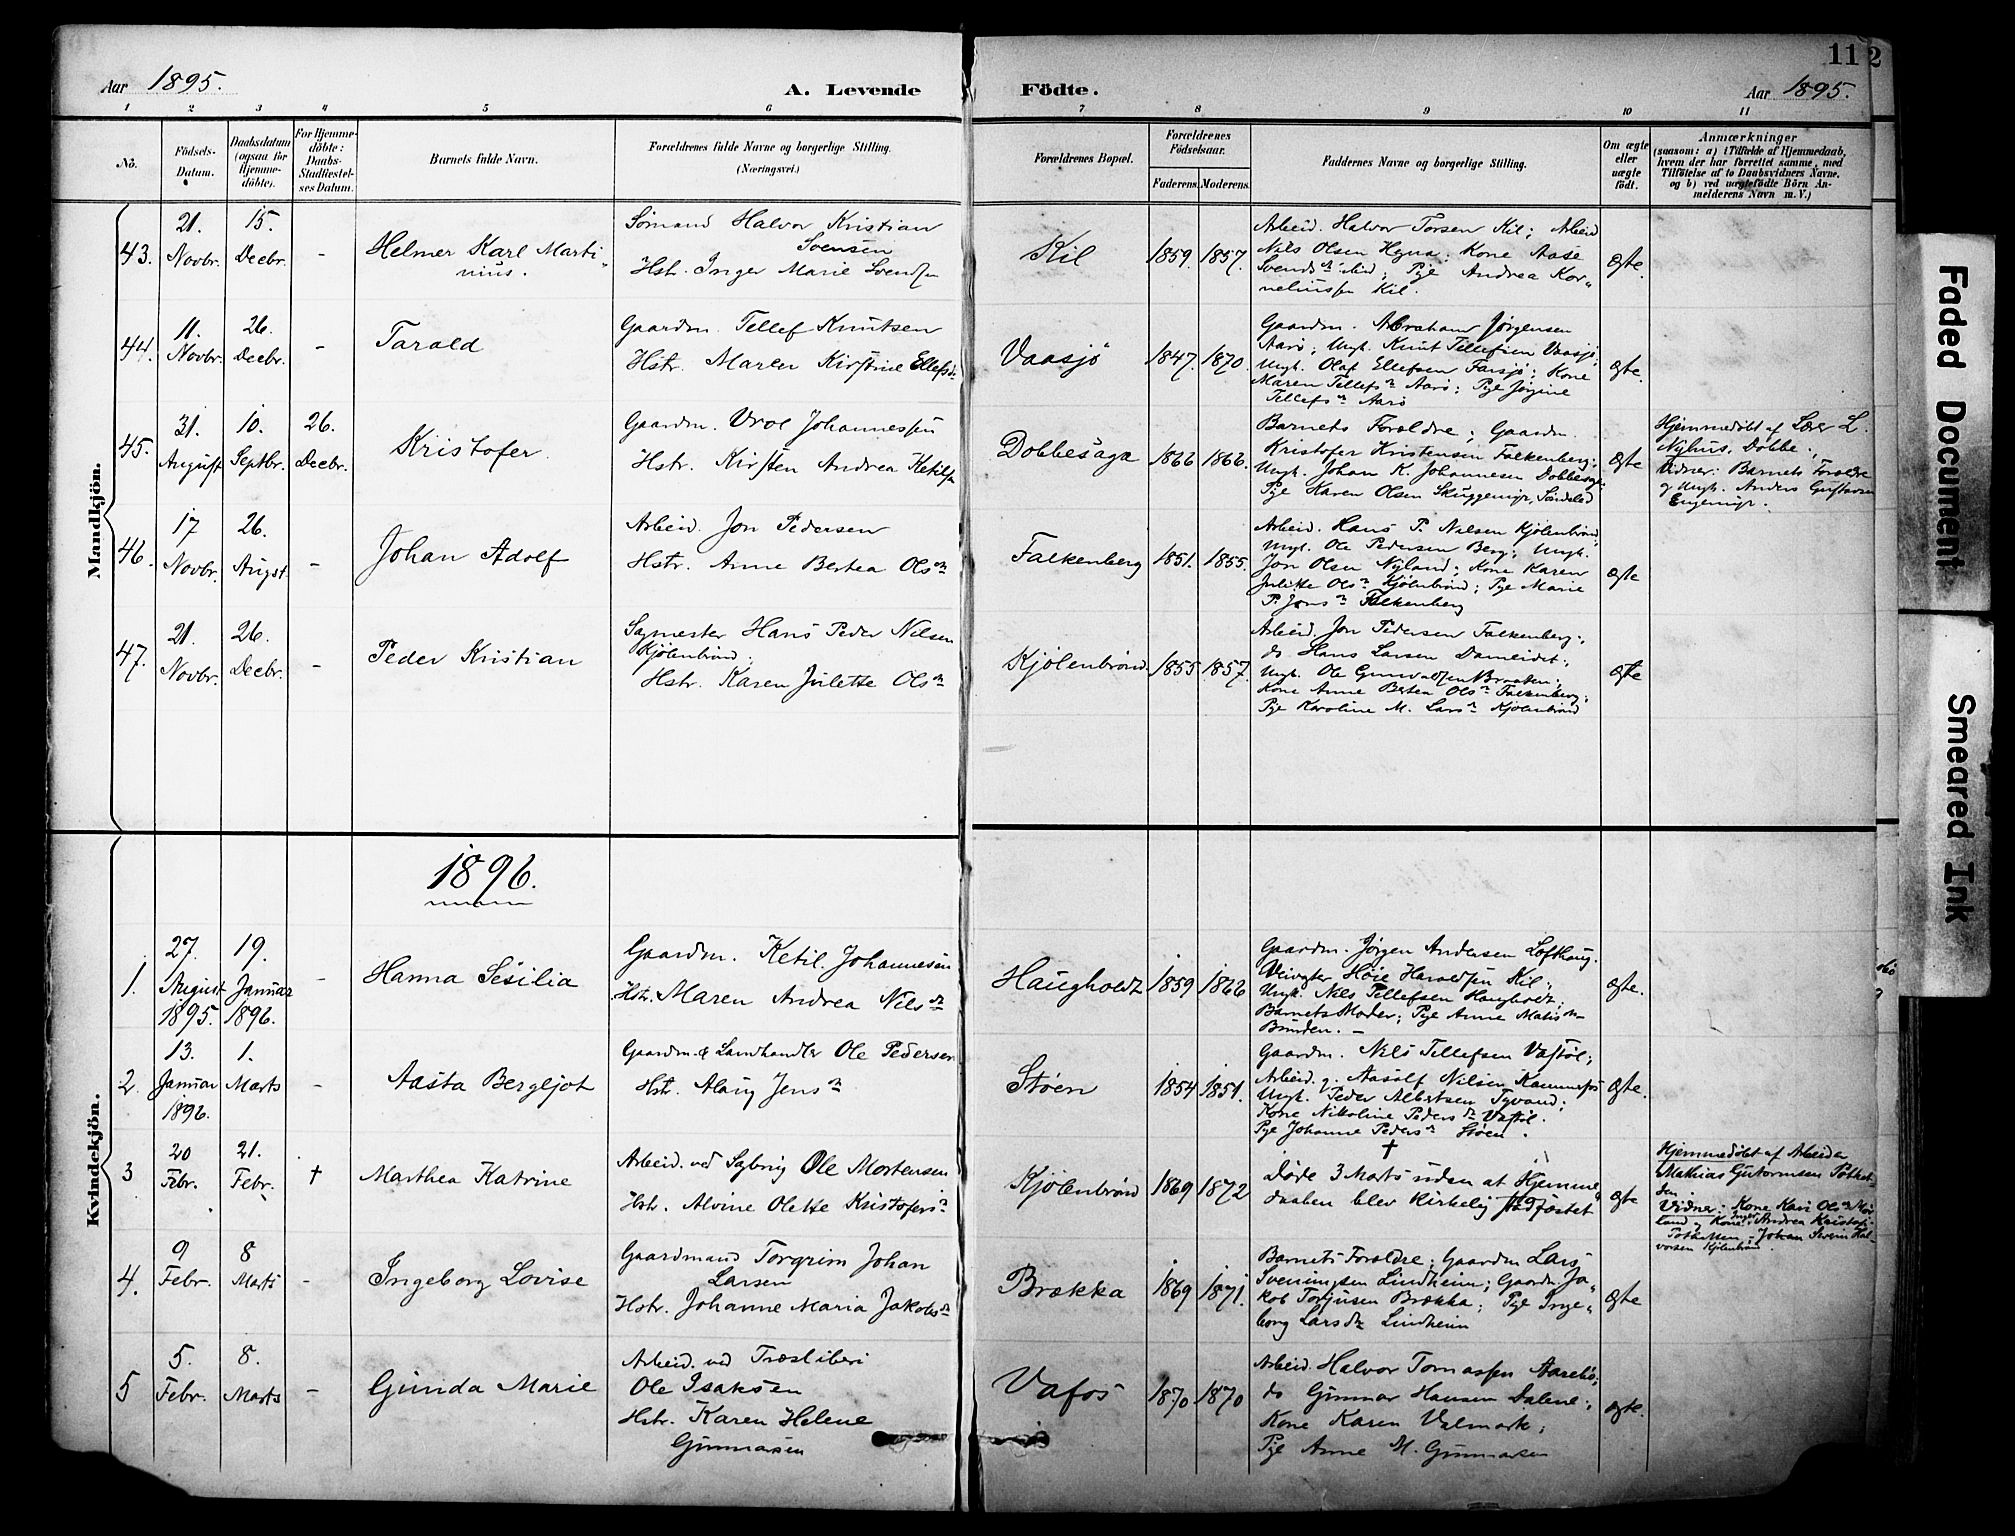 Aar 1895.
A. Levende Födte.
Aar 1895.
11
2
1 2 3 4 5 6 7 8 9 10 11
No.
Födsels-
Datum.
Daabsdatum
(ogsaa for
Hjemme-
döbte).
For Hjemme-
döbte:
Daabs-
Stadfæstel-
ses Datum.
Barnets fulde Navn.
Forældrenes fulde Navne og borgerlige Stilling.
(Næringsvei.)
Forældrenes Bopæl.
Forældrenes
Födselsaar.
Faderens. Moderens.
Faddernes Navne og borgerlige Stilling.
Om ægte
eller
uægte
födt.
Anmærkninger
(saasom: a) i Tilfælde af Hjemmedaab,
hvem der har forrettet samme, med
Tilföielse af to Daabsvidners Navne.
og b) ved uægtefödte Börn An-
melderens Navn m. V.)
Mandkjön.
43.
21.
Novbr.
15.
Decbr.
-
Helmer Karl Marti-
nius.
Sömand Halvor Kristian
Svensen
Hstr. Inger Marie Svendsn
Kil
1859. 1857.
Arbeid. Halvor Torsen Kil; Arbeid
Nils Olsen Hegna; Kone Aase
Svendsn ibid; Pige Andrea Kor-
neliussn Kil.
Ægte.
44.
11.
Novbr.
26.
Decbr.
-
Tarald
Gaardm. Tellef Knutsen
Hstr. Maren Kirstine Ellefsdr
Vaasjö
1847. 1870.
Gaardm. Abraham Jörgensen
Aarö; Ungk. Knut Tellefsen Vaasjö;
Ungk. Olaf Ellefsen Farsjö; Kone
Maren Tellefsn Aarö; Pige Jörgine
Tellefsn Aarö
Ægte.
45.
31.
August
10.
Septbr.
26.
Decbr.
Kristofer
Gaardm. Vrol Johannessen
Hstr. Kirsten Andrea Ketilsn
Dobbesaga
1866 1866.
Barnets Forældre; Gaardm.
Kristofer Kristensen Falkenberg;
Ungk. Johan K. Johannesen Dobbesaga
Pige Karen Olsen Skuggemyr, Söndeled
Ægte
Hjemmedöbt af Lærer L.
Nyhus, Dobbe.
Vidner: Barnets Forældre
og Ungk. Anders Gustavsen
Engemyr.
46.
17
Novbr.
26.
Augst.
-
Johan Adolf
Arbeid. Jon Pedersen
Hstr. Anne Bertea Olsn
Falkenberg
1851. 1855.
Arbeid. Hans P. Nilsen Kjölenbrönd;
Ungk. Ole Pedersen Berg; Ungk.
Jon Olsen Nyland; Kone Karen
Julette Olsn Kjölenbrönd; Pige Marie
P. Jonsn Falkenberg
Ægte
47.
21.
Novbr.
26.
Decbr.
-
Peder Kristian
Sagmester Hans Peder Nilsen
Kjölenbrönd;
Hstr. Karen Julette Olsn
Kjölenbrönd
1855 1857.
Arbeid. Jon Pedersen Falkenberg;
do Hans Larsen Dameidet;
Ungk. Ole Gunvaldsen Braaten;
Kone Anne Bertea Olsn Falkenberg;
Pige Karoline M. Larsn Kjölenbrönd
Ægte
Kvindekjön.
1896.
1.
27.
August
1895.
19.
Januar
1896.
-
Hanna Sesilia
Gaardm. Ketil Johannesen
Hstr. Maren Andrea Nilsdr
Haugholdt
1859 1866
Gaardm. Jörgen Andersen Lofthaug.
Veivgter Höie Haraldsen Kil;
Ungk. Nils Tellefsen Haugholdt;
Barnets Moder; Pige Anne Matisn
Bunden. -
Ægte.
2.
13.
Januar
1896.
1.
Marts
-
Aasta Bergljot
Gaardm. & Landhandler Ole Pedersen
Hstr. Alaug Jensn
Stöen
1854 1851.
Gaardm. Nils Tellefsen Vastöl;
Arbeid. g. Aasolf Nilsen Kammefos
Ungk. Peder Albertsen Tyvand;
Kone Nikoline Pedersdr Vastöl.
Pige Johanne Pedersn Stöen.
Ægte.
3
20
Febr.
21.
Febr.
†
Marthea Katrine
Arbeid. ved Sagbrug Ole Mortensen
Hstr. Alvine Olette Kristofersn
Kjölenbrönd
1869 1872
†
Döde 3 Marts uden at Hjemme-
daaben blev kirkelig stadfæstet
Ægte
Hjemmedöbt af Arbeider
Mathias Guttormsen Pothat-
ten
Vidner: Kone Kari Olsn Mör-
land og Kone Inger Andrea Kristofs-
Pothatten - Johan Severin Hal-
vorsen Kjölenbrönd.
4.
9
Febr.
8
Marts
-
Ingeborg Lovise
Gaardmand Torgrim Johan
Larsen
Hstr. Johanne Maria Jakobsdr
Brækka
1869 1871.
Barnets Forældre; Gaardm Lars
Sveningsen Lindheim; Gaardm. Ja-
kob Torjusen Brækka; Pige Inge-
borg Larsdr Lindheim
Ægte
5
5.
Febr.
8.
Marts
-
Gunda Marie
Arbeid. ved Træsliberi
Ole Isaksen
Hstr. Karen Helene
Gunnarsen
Vafos
1870 1870
Arbeid. Halvor Tomassen Aarebö;
do Gunnar Hansen Dalene;
Kone Karen Valmark;
Pige Anne M. Gunnarsen
Ægte.
Faded Document
Smeared Ink